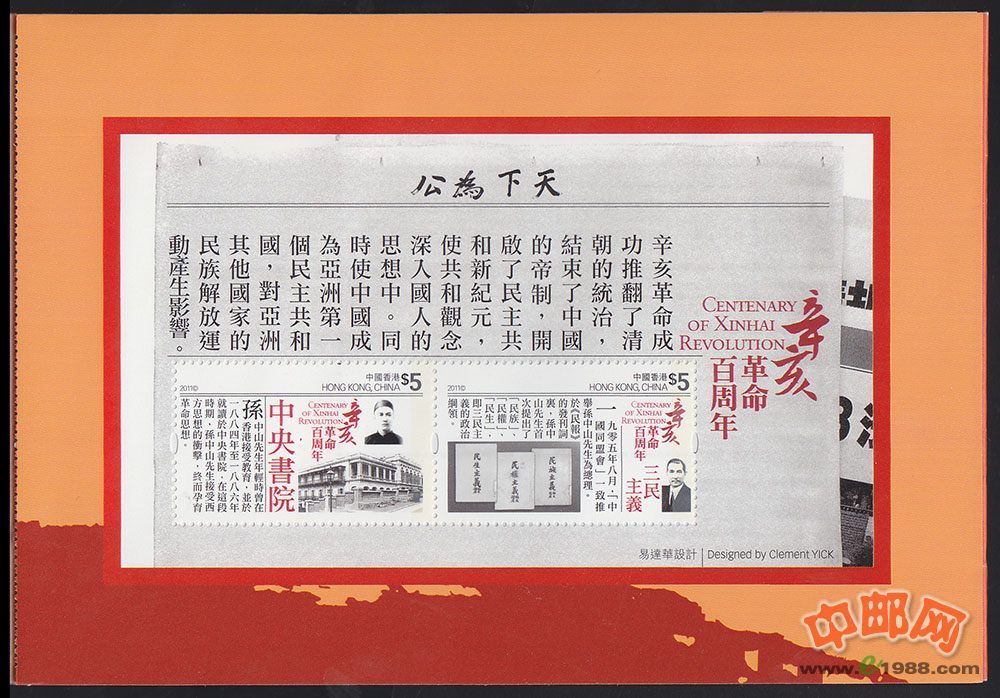 公為下天
辛亥革命成
功推翻了清
朝的統治，
結束了中國
的帝制，開
啟了民主共
和新紀元，
使共和觀念
深入國人的
思想中。同
時使中國成
為亞洲第一
個民主共和
國，對亞洲
其他國家的
民族解放運
動產生影響。
CENTENARY
OF XINHAI
REVOLUTION
辛亥
革命
百周年
2011©
中國香港
HONG KONG, CHINA
$5
CENTENARY
OF XINHAI
REVOLUTION
辛亥
革命
百周年
中央書院
孫中山先生年輕時曾在
香港接受教育，並於
一八八四年至一八八六年
就讀於中央書院。在這段
時期，孫中山先生接受西
方思想的衝擊，終而孕育
革命思想。
2011©
中國香港
HONG KONG, CHINA
$5
CENTENARY
OF XINHAI
REVOLUTION
辛亥
革命
百周年
三民
主義
一九零五年八月，「中
國同盟會」一致推
舉孫中山先生為總理。
於《民報》
的發刊詞
裏，孫中
山先生首
次提出了
「民族」、
「民權」、
「民生」，
即三民主
義的政治
綱領。
民生主義
民權主義
民族主義
易達華設計
Designed by Clement YICK
中邮网
www.e1988.com